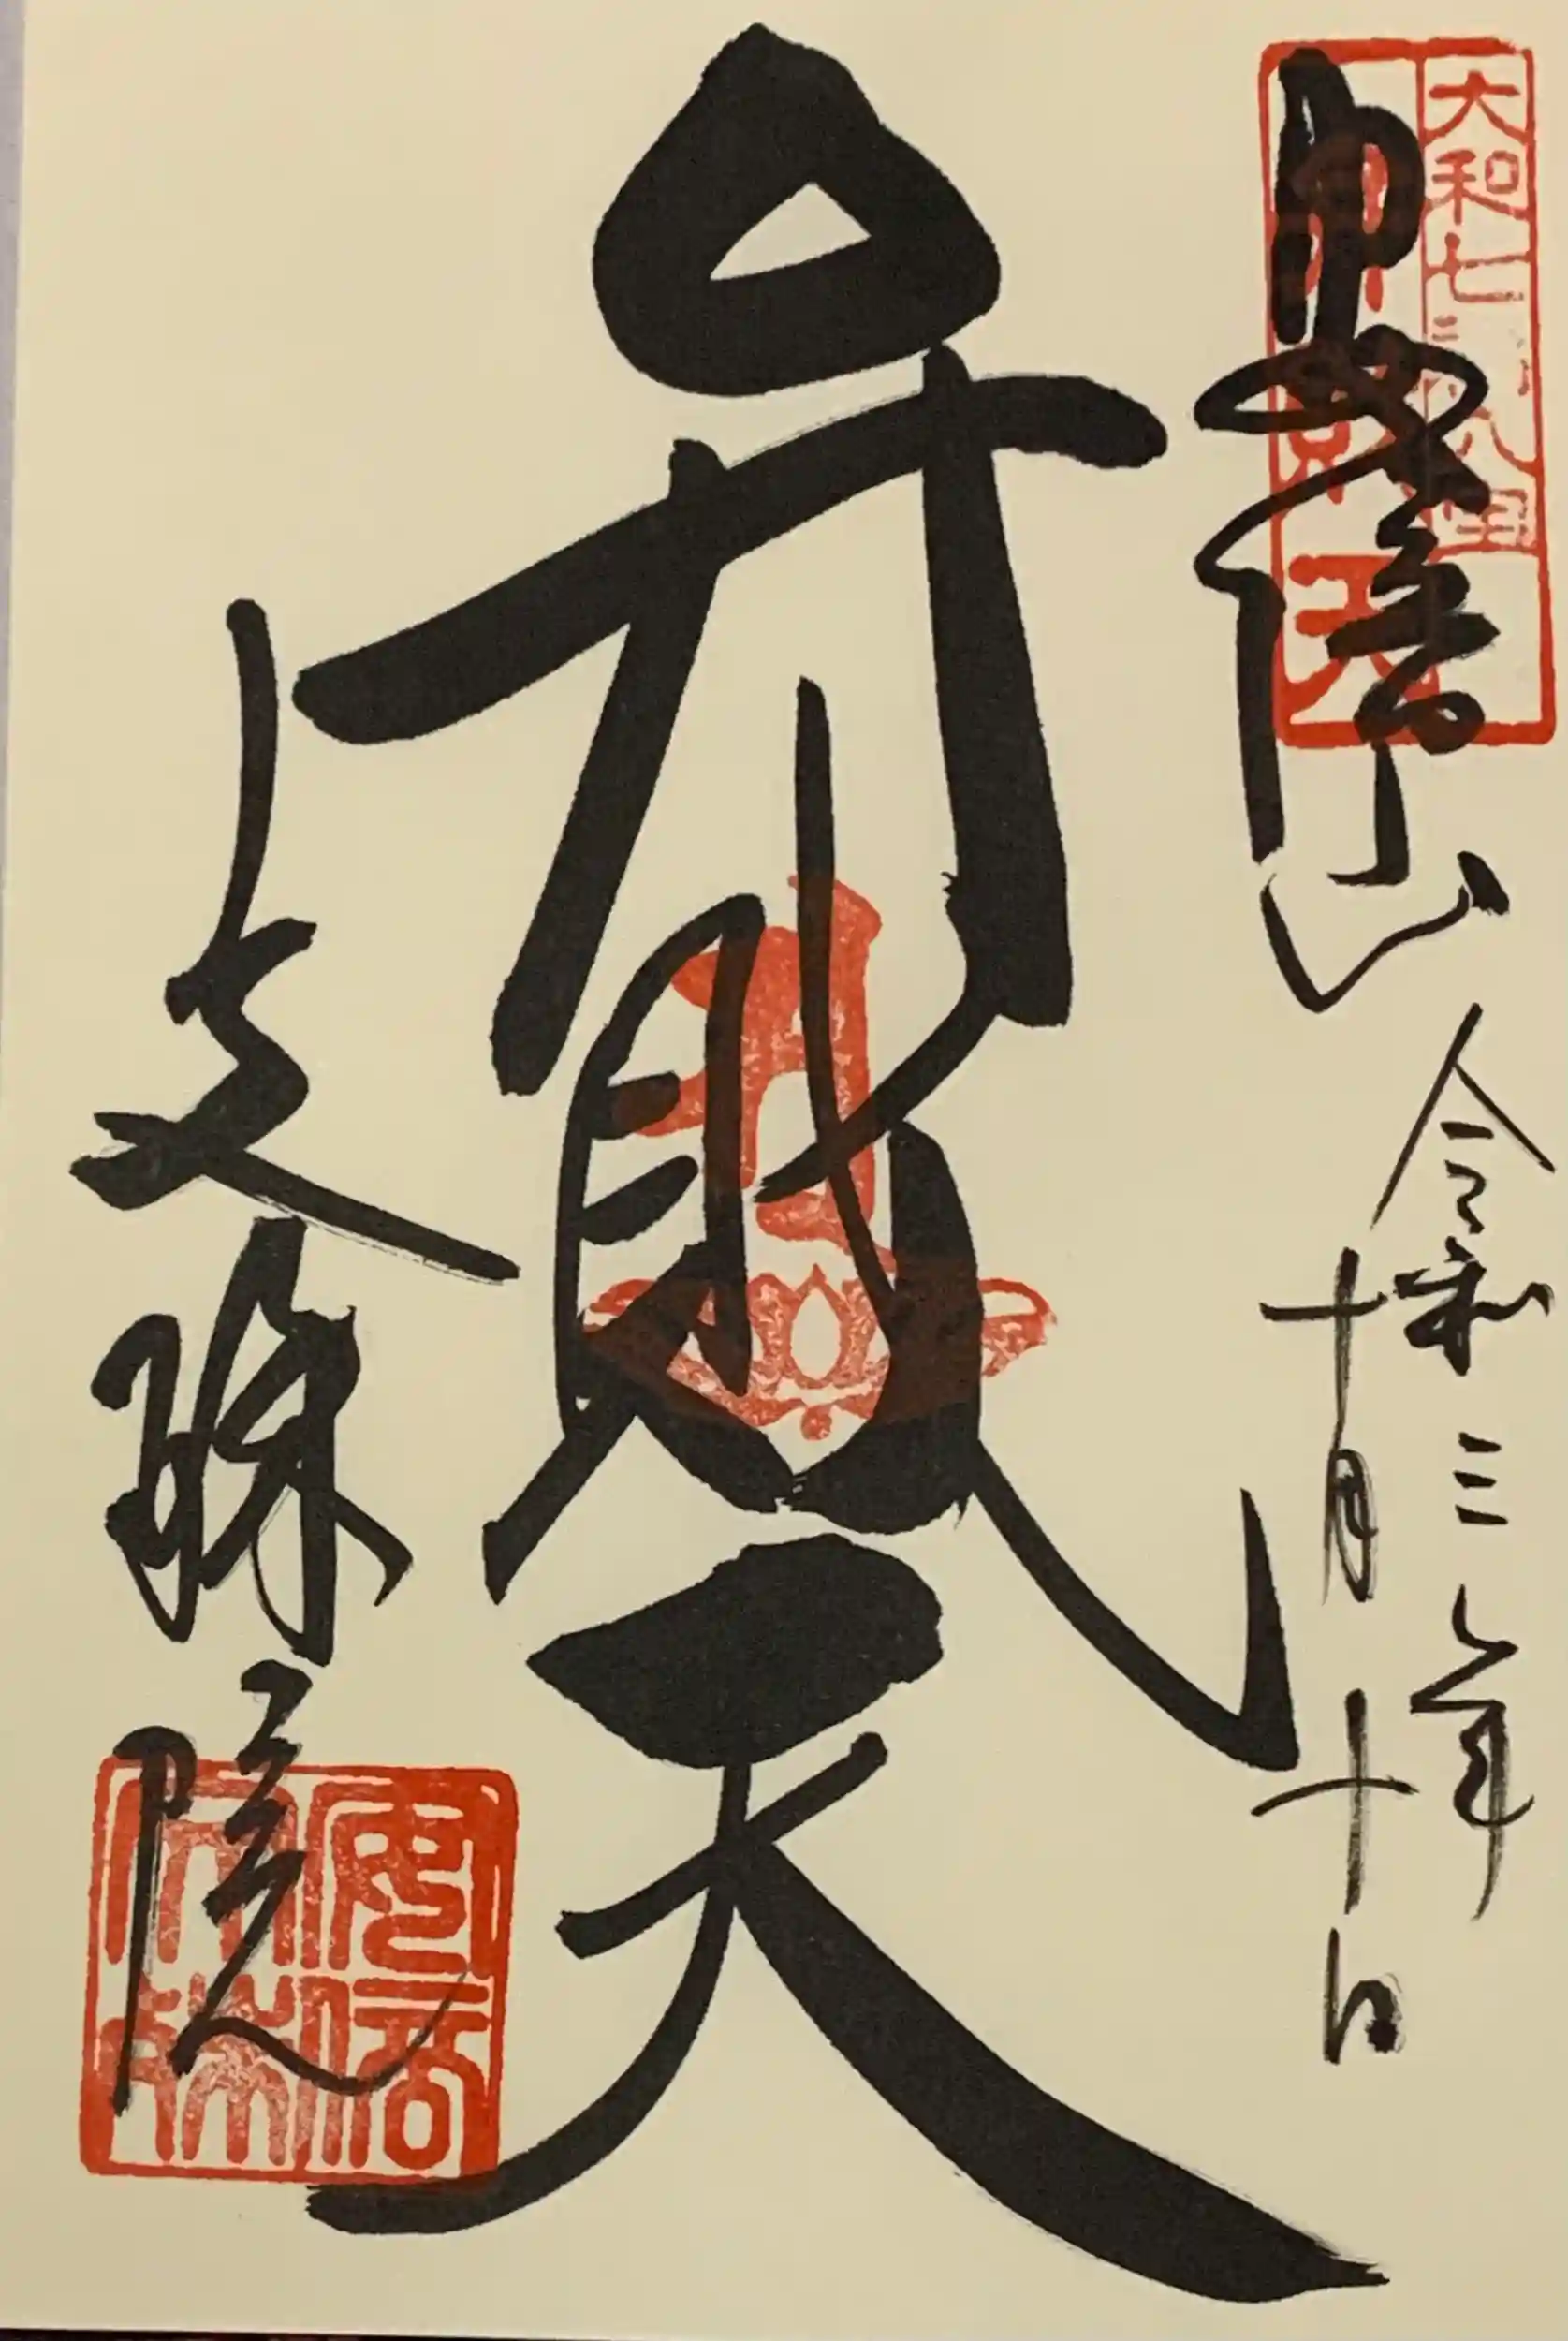 大和七福八宝
弁財天
安倍山
令和三年
十月十日
弁財天
文殊院